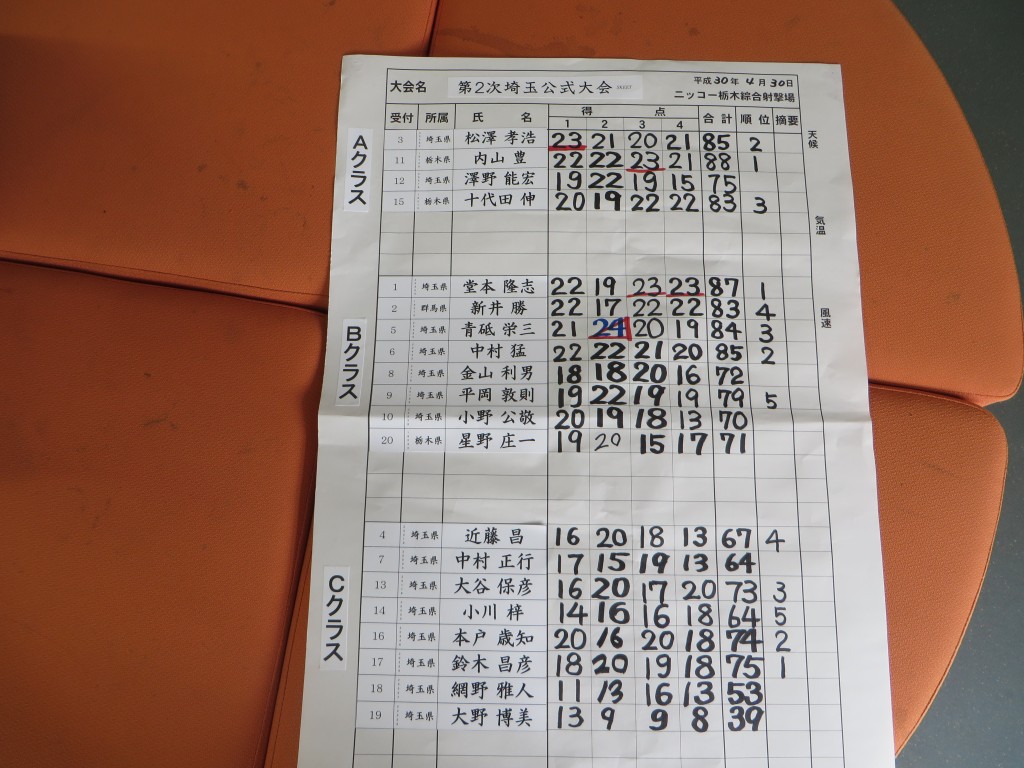 大会名 第2次埼玉公式大会 平成30年4月30日
ニッコー栃木綜合射撃場
受付 所属 氏名 得点 合計 順位 摘要
1 2 3 4
Aクラス
3 埼玉県 松澤 孝浩 23 21 20 21 85 2
11 栃木県 内山 豊 22 22 23 21 88 1
12 埼玉県 澤野 能宏 19 22 19 15 75
15 栃木県 十代田 伸 20 19 22 22 83 3
Bクラス
1 埼玉県 堂本 隆志 22 19 23 23 87 1
2 群馬県 新井 勝 22 17 22 22 83 4
5 埼玉県 青砥 栄三 21 24 20 19 84 3
6 埼玉県 中村 猛 22 22 21 20 85 2
8 埼玉県 金山 利男 18 18 20 16 72
9 埼玉県 平岡 敦則 19 22 19 19 79 5
10 埼玉県 小野 公敬 20 19 18 13 70
20 栃木県 星野 庄一 19 20 15 17 71
Cクラス
4 埼玉県 近藤 昌 16 20 18 13 67 4
7 埼玉県 中村 正行 17 15 19 13 64
13 埼玉県 大谷 保彦 16 20 17 20 73 3
14 埼玉県 小川 梓 14 16 16 18 64 5
16 埼玉県 本戸 歳知 20 16 20 18 74 2
17 埼玉県 鈴木 昌彦 18 20 19 18 75 1
18 埼玉県 網野 雅人 11 13 16 13 53
19 埼玉県 大野 博美 13 9 9 8 39
天候
気温
風速